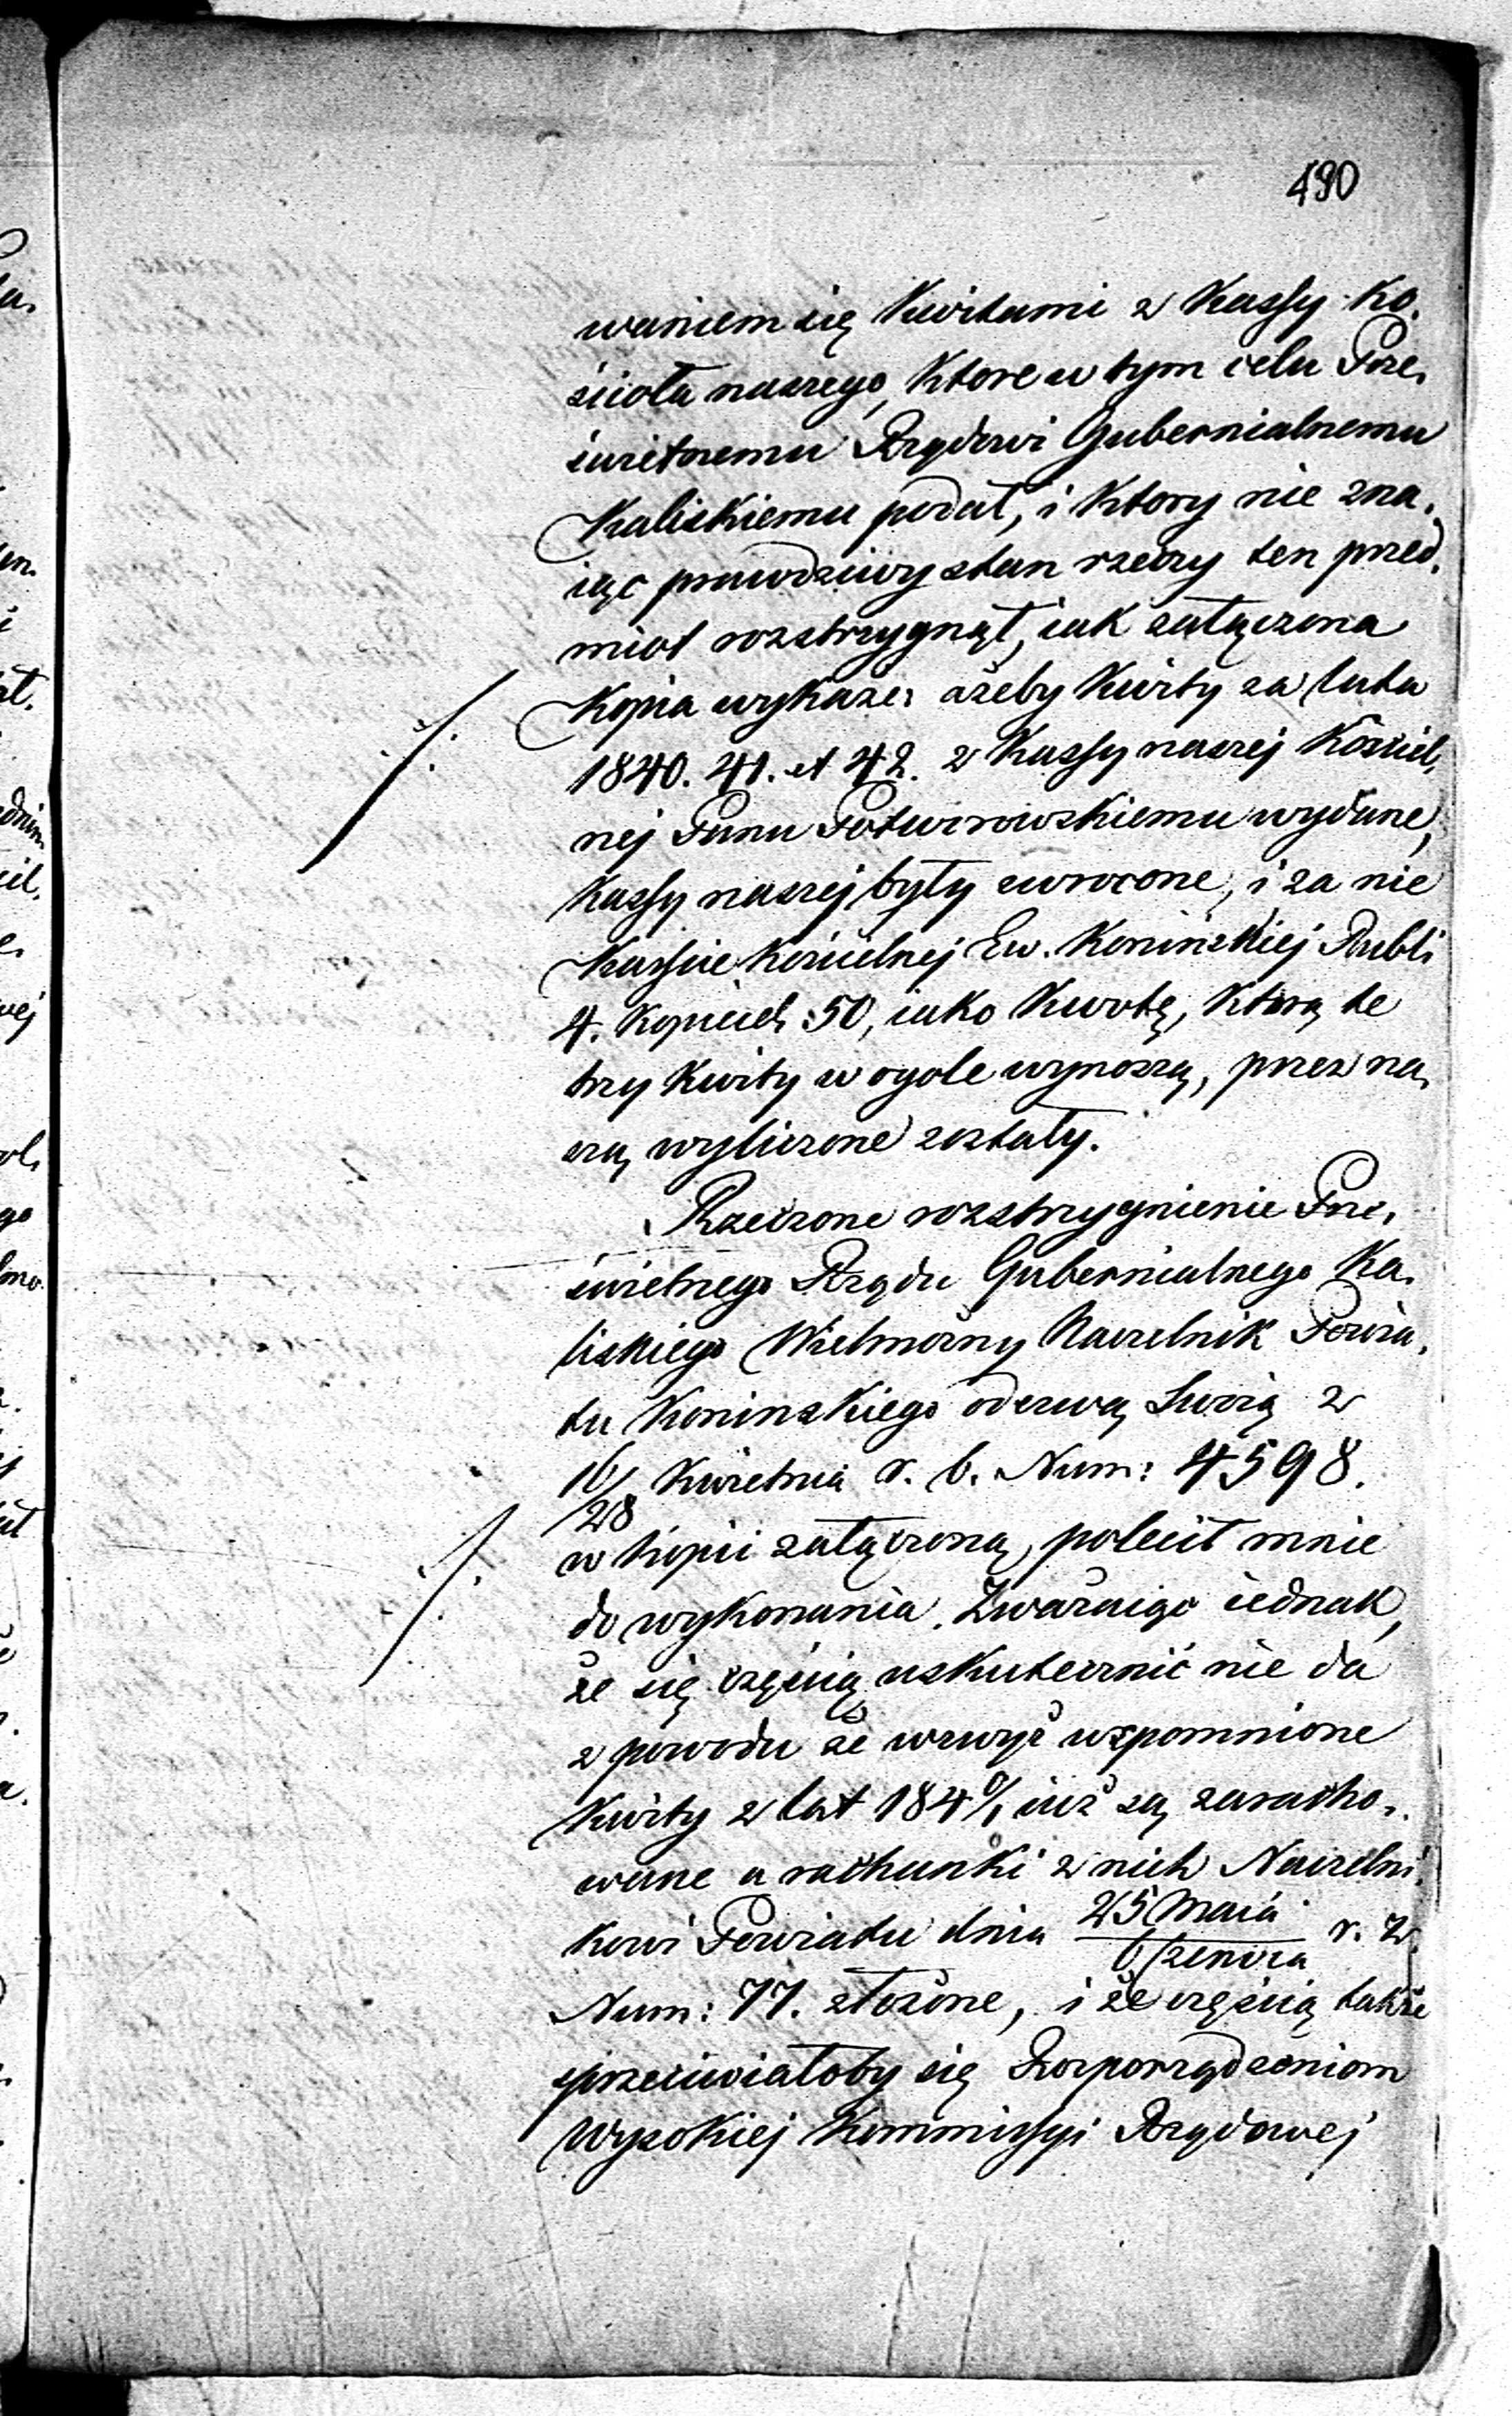 490
waniem się Kwitami z Kassy Ko,
ścioła naszego, Ktore w tym celu Prze,
świetnemu Rządowi Gubernialnemu
Kaliskiemu podał, i Ktory nie zna,
iąc prawdziwy stan rzeczy ten przed,
miot rozstrzygnął, iak załączona
Kopia wykaże: ażeby Kwity za lata
1840. 41. et 42. z Kassy naszej Kościel,
nej Panu Potworowskiemu wydane,
Kassy naszej były zwrocone, i za nie
Kassie Kościelnej Ew. Koninskiej Rubli
4. Kopiiek 50, iako Kwotę, Ktorą te
trzy Kwity w ogole wynoszą, przez na,
szą wyliczone zostały.
Rzeczone rozstrzygnienie Prze,
świetnego Rządu Gubernialnego Ka,
liskiego Wielmożny Naczelnik Powia,
tu Koninskiego odezwą Swoią z
16/28 Kwietnia r. b. Num: 4598.
w Kopii załączoną, polecił mnie
do wykonania. Zważaiąc iednak,
że się częścią uskutecznić nie da
z powodu że wzwyż wspomnione
Kwity z lat 184 0/1 iuż są zaracho,
wane a rachunki z nich Naczelni,
Kowi Powiatu dnia 25 Maia / 6 Czerwca r. z.
Num: 77. złożone, i że częścią także
sprzeciwiałoby się Rozporządzeniom
Wysokiej Kommissyi Rządowej